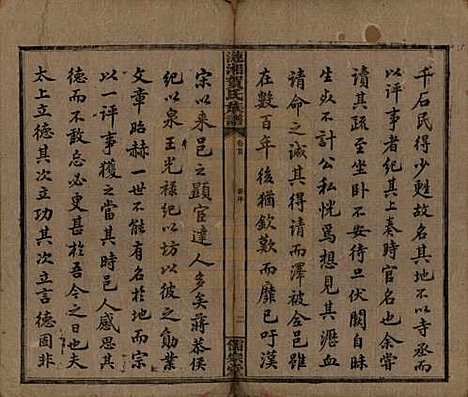 千石民得少甦故名其地不以寺丞而
以評事者紀其上奏時官名也余嘗
讀其疏至坐卧不安待旦伏闕自昧
生死不計公私恍爲想見其瀝血
請命之誠其得請而澤被全邑可以
在數百年後猶欽歎而靡已吁漢
漣湘賀氏族譜
卷首
二
儒宗堂
宗以来邑之顯官達人多矣蔣恭侯
紀以泉王光禄紀以坊以彼之勛業
文章昭赫一世不能有名於地而宗
以一評事獲之當其時邑人感思其
德而不忘必更甚於吾今之日也夫
太上立德其次立功其次立言德固非